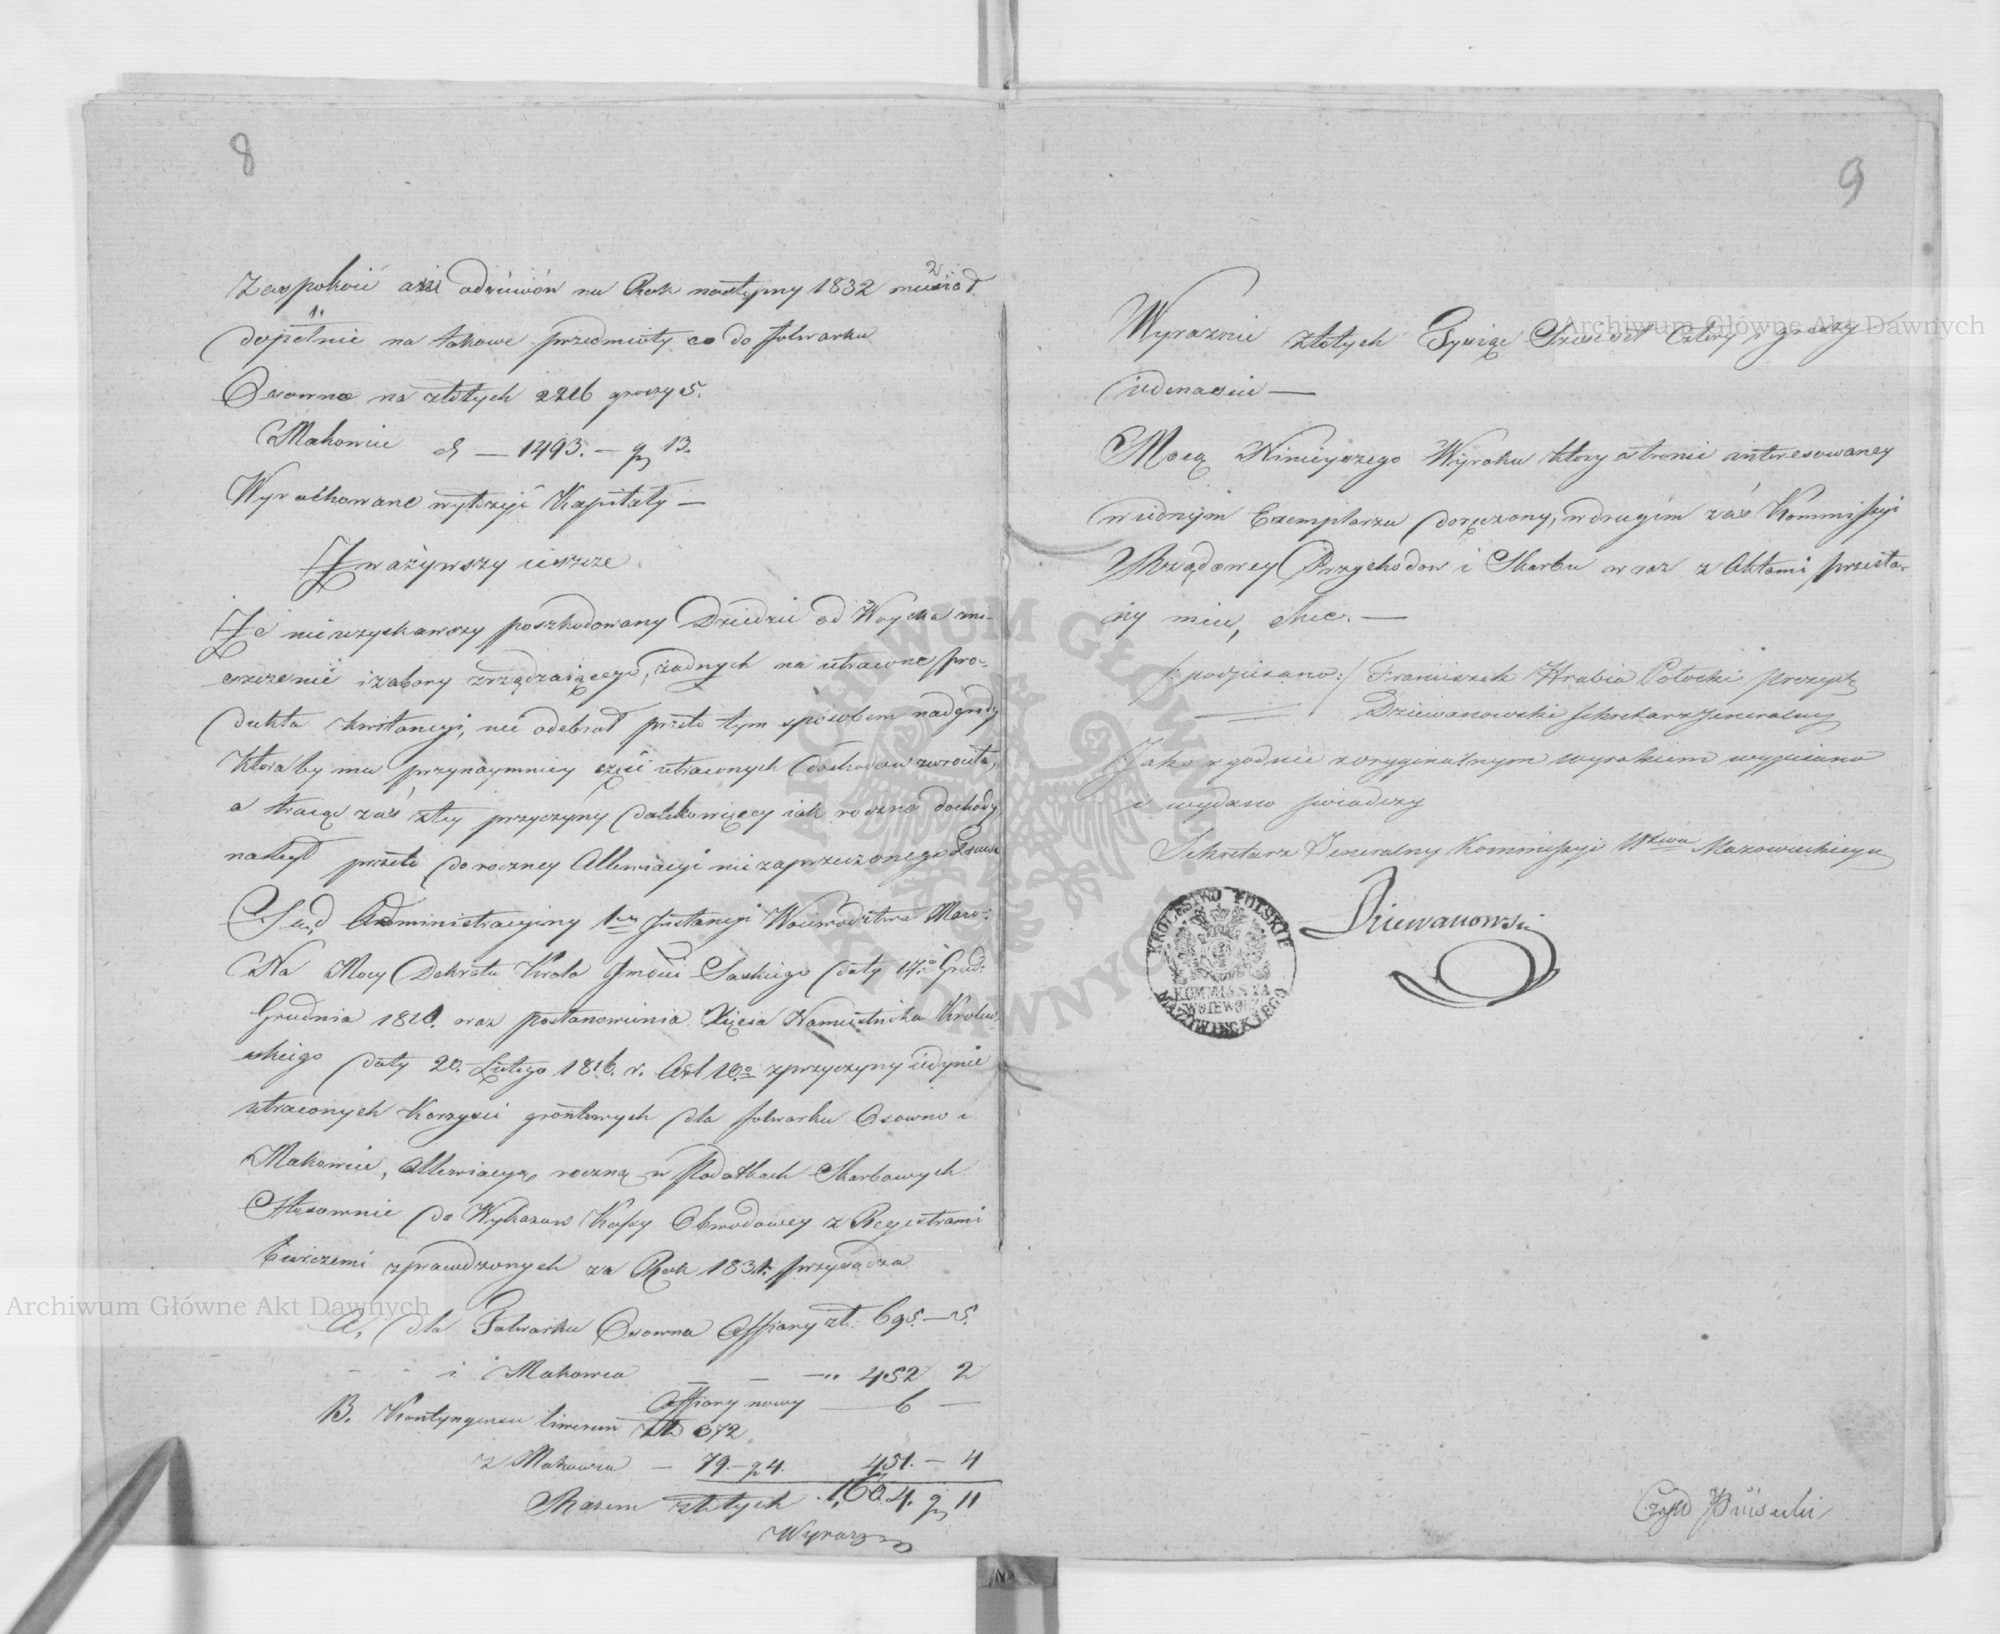 8
Zaspokoić azei odsiéwów na Rok nastęmny 1832 musiał
dopełnie na takowe przedmioty co do folwarku
Osowna na złotych 2216 groszy 5.
Makowie d — 1493. — g 13.
Wyrachowane wyłożyć Kapitały —
Zważywszy ieszcze
Że nieuzyskawszy poszkodowany Dziedzic od Woyska zni-
szczenie i zabory zrządzaiącego, żadnych na utracone pro-
dukta kwitancyi, nie odebrał przeto tym sposobem nadgrody
któraby mu przynaymniey część utraconych dochodów zwrociła,
a tracąc zaś z tey przyczyny daleko więcey iak roczne dochody
nabył przeto do roczney Allewiacyi niezaprzeczonego Prawa
Sąd Administracyiny 1ey Instancyi Woiewodztwa Mazo:
Na Mocy Dekretu Króla Jmości Saskiego daty 17.o Grud:
Grudnia 1810. oraz postanowienia Xięcia Namiestnika Królew
skiego daty 20. Lutego 1816. r. Art 10.o z przyczyny iedynie
utraconych korzyści grontowych dla folwarku Osowno i
Makowie, Allewiacyą roczną w Podatkach Skarbowych
Stosownie do Wykazow Kassy Obwodowey z Regestrami
bierczemi sprawdzonych za Rok 1831. przysądza
A, dla Folwarku Osowna Offiary zł: 695. — 5.
- - i Makowca — — — 452 2
Offiary nowy — 6 —
B. Kontyngensu liwerun zł 372
z Makowca — 79. — g 4. 451. — 4
Razem złotych 1,604. g 11
Wyrazn
9
Wyraznie złotych Tysiąc Szescset Cztery i groszy
iedenascie —
Mocą Ninieyszego Wyroku ktory stronie interesowaney
w iednym Exemplarzu doręczony, w drugim zaś Kommissyi
Rządowey Przychodow i Skarbu wraz z Aktami, przesła-
ny miec, chce. —
/: podpisano: / Franciszek Hrabia Potocki prezyd:
—"— / Dziewanowski sekretarz Jeneralny
Jako zgodnie z oryginalnym wyrokiem wypisano
i wydano swiadczy
Sekretarz Jeneralny Kommissyi Wztwa Mazowieckiego
Dziewanowski
KROLESTWO POLSKIE
KOMMISSYA
WOIEWODZ:
MAZOWIECKIEGO
Archiwum Główne Akt Dawnych
Archiwum Główne Akt Dawnych
ARCHIWUM GŁÓWNE AKT DAWNYCH